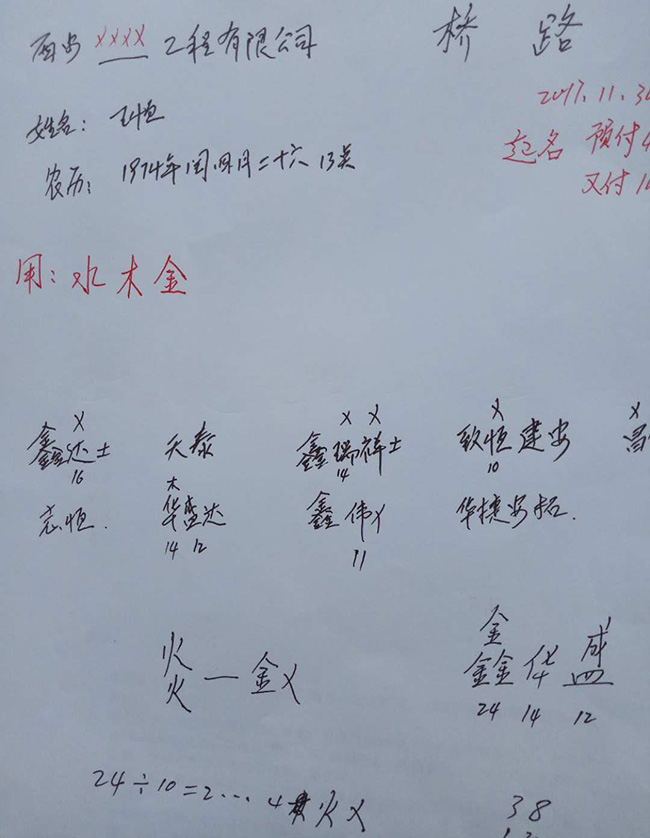 西安 XXXX 工程有限公司
桥 路
2017.11.30
姓名: 王恒
起名 预付4
又付10
农历: 1974年闰四月二十六 13点
用: 水木金
X
鑫达土
16
天泰
X X
鑫瑞祥土
14
X
致恒建安
10
X
昌
志恒.
木
华盛达
14 12
鑫伟X
11
华捷安拓.
火
火 — 金X
金
鑫华盛
24 14 12
24÷10=2...4 火X
38